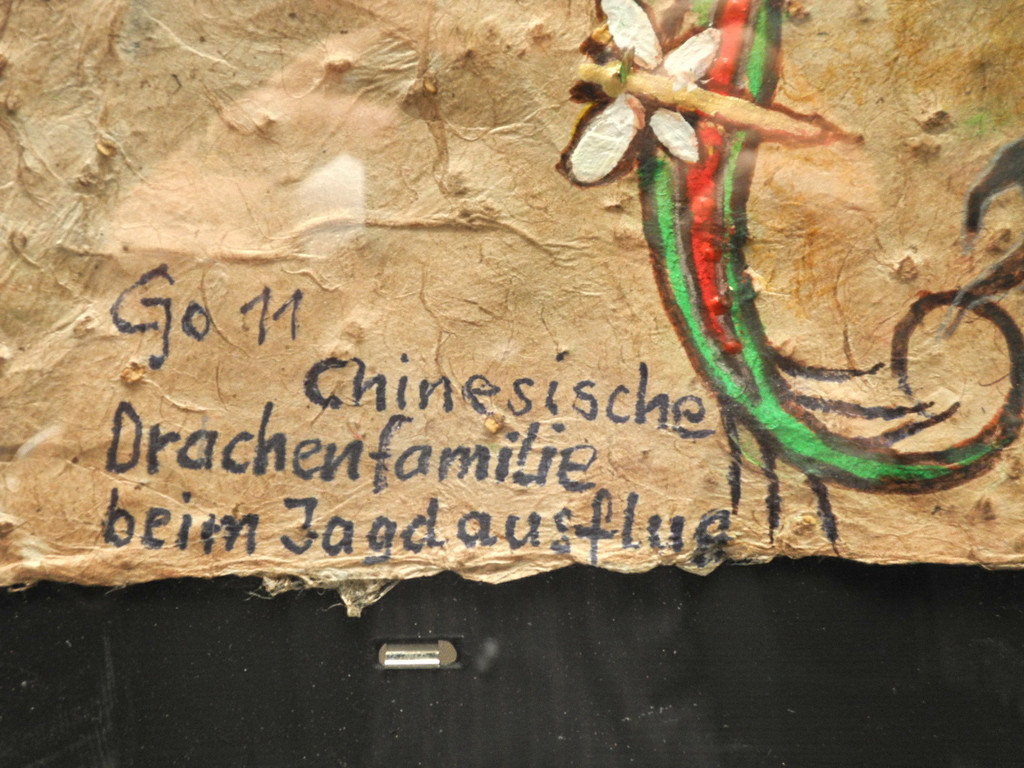 Go 11
Chinesische
Drachenfamilie
beim Jagdausflug